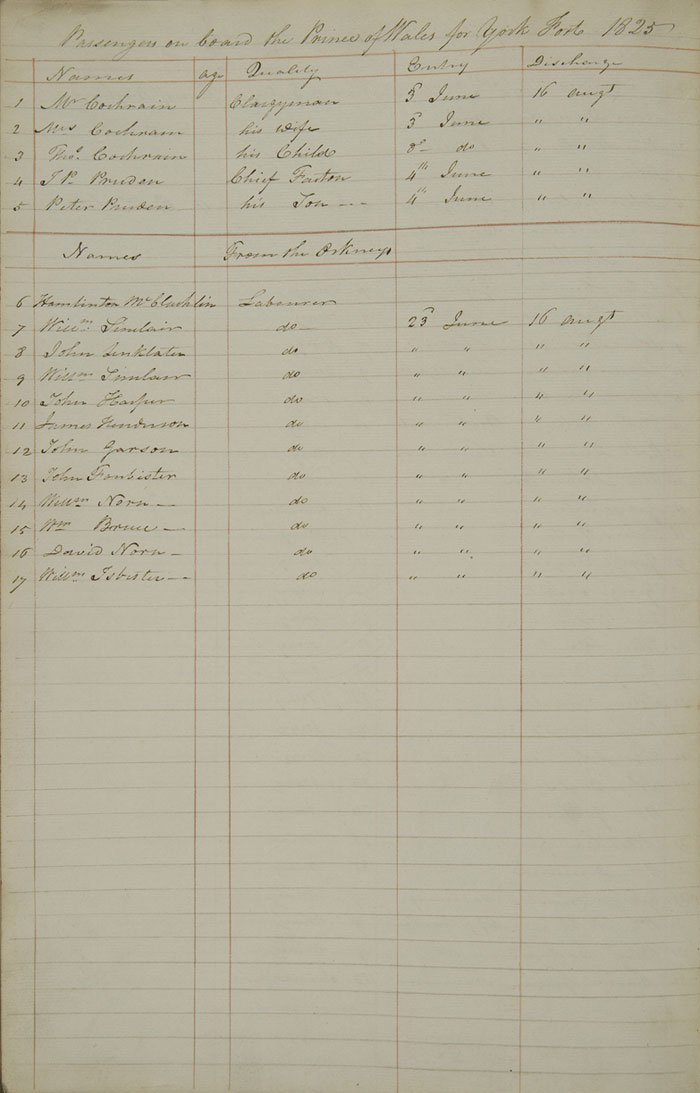 Passengers on board the Prince of Wales for York Fort 1825
Names age Quality Entry Discharge
1 Mr Cochrain Clargyman 5 June 16 augt
2 Mrs Cochrain his Wife 5 June " "
3 Thos. Cochrain his Child do do " "
4 J P. Pruden Chief Factor 4th June " "
5 Peter Pruden his Son - - - 4th June " "
Names From the Orkneys
6 Hamlinton McClachlin Labourer
7 Willm Sinclair do 23d June 16 augt
8 John Linklater do " " " "
9 Willm Sinclair do " " " "
10 John Harper do " " " "
11 James Henderson do " " " "
12 John Garson do " " " "
13 John Foubister do " " " "
14 Willm Norn - do " " " "
15 Wm Bruce - do " " " "
16 David Norn - do " " " "
17 Willm Isbister - - do " " " "